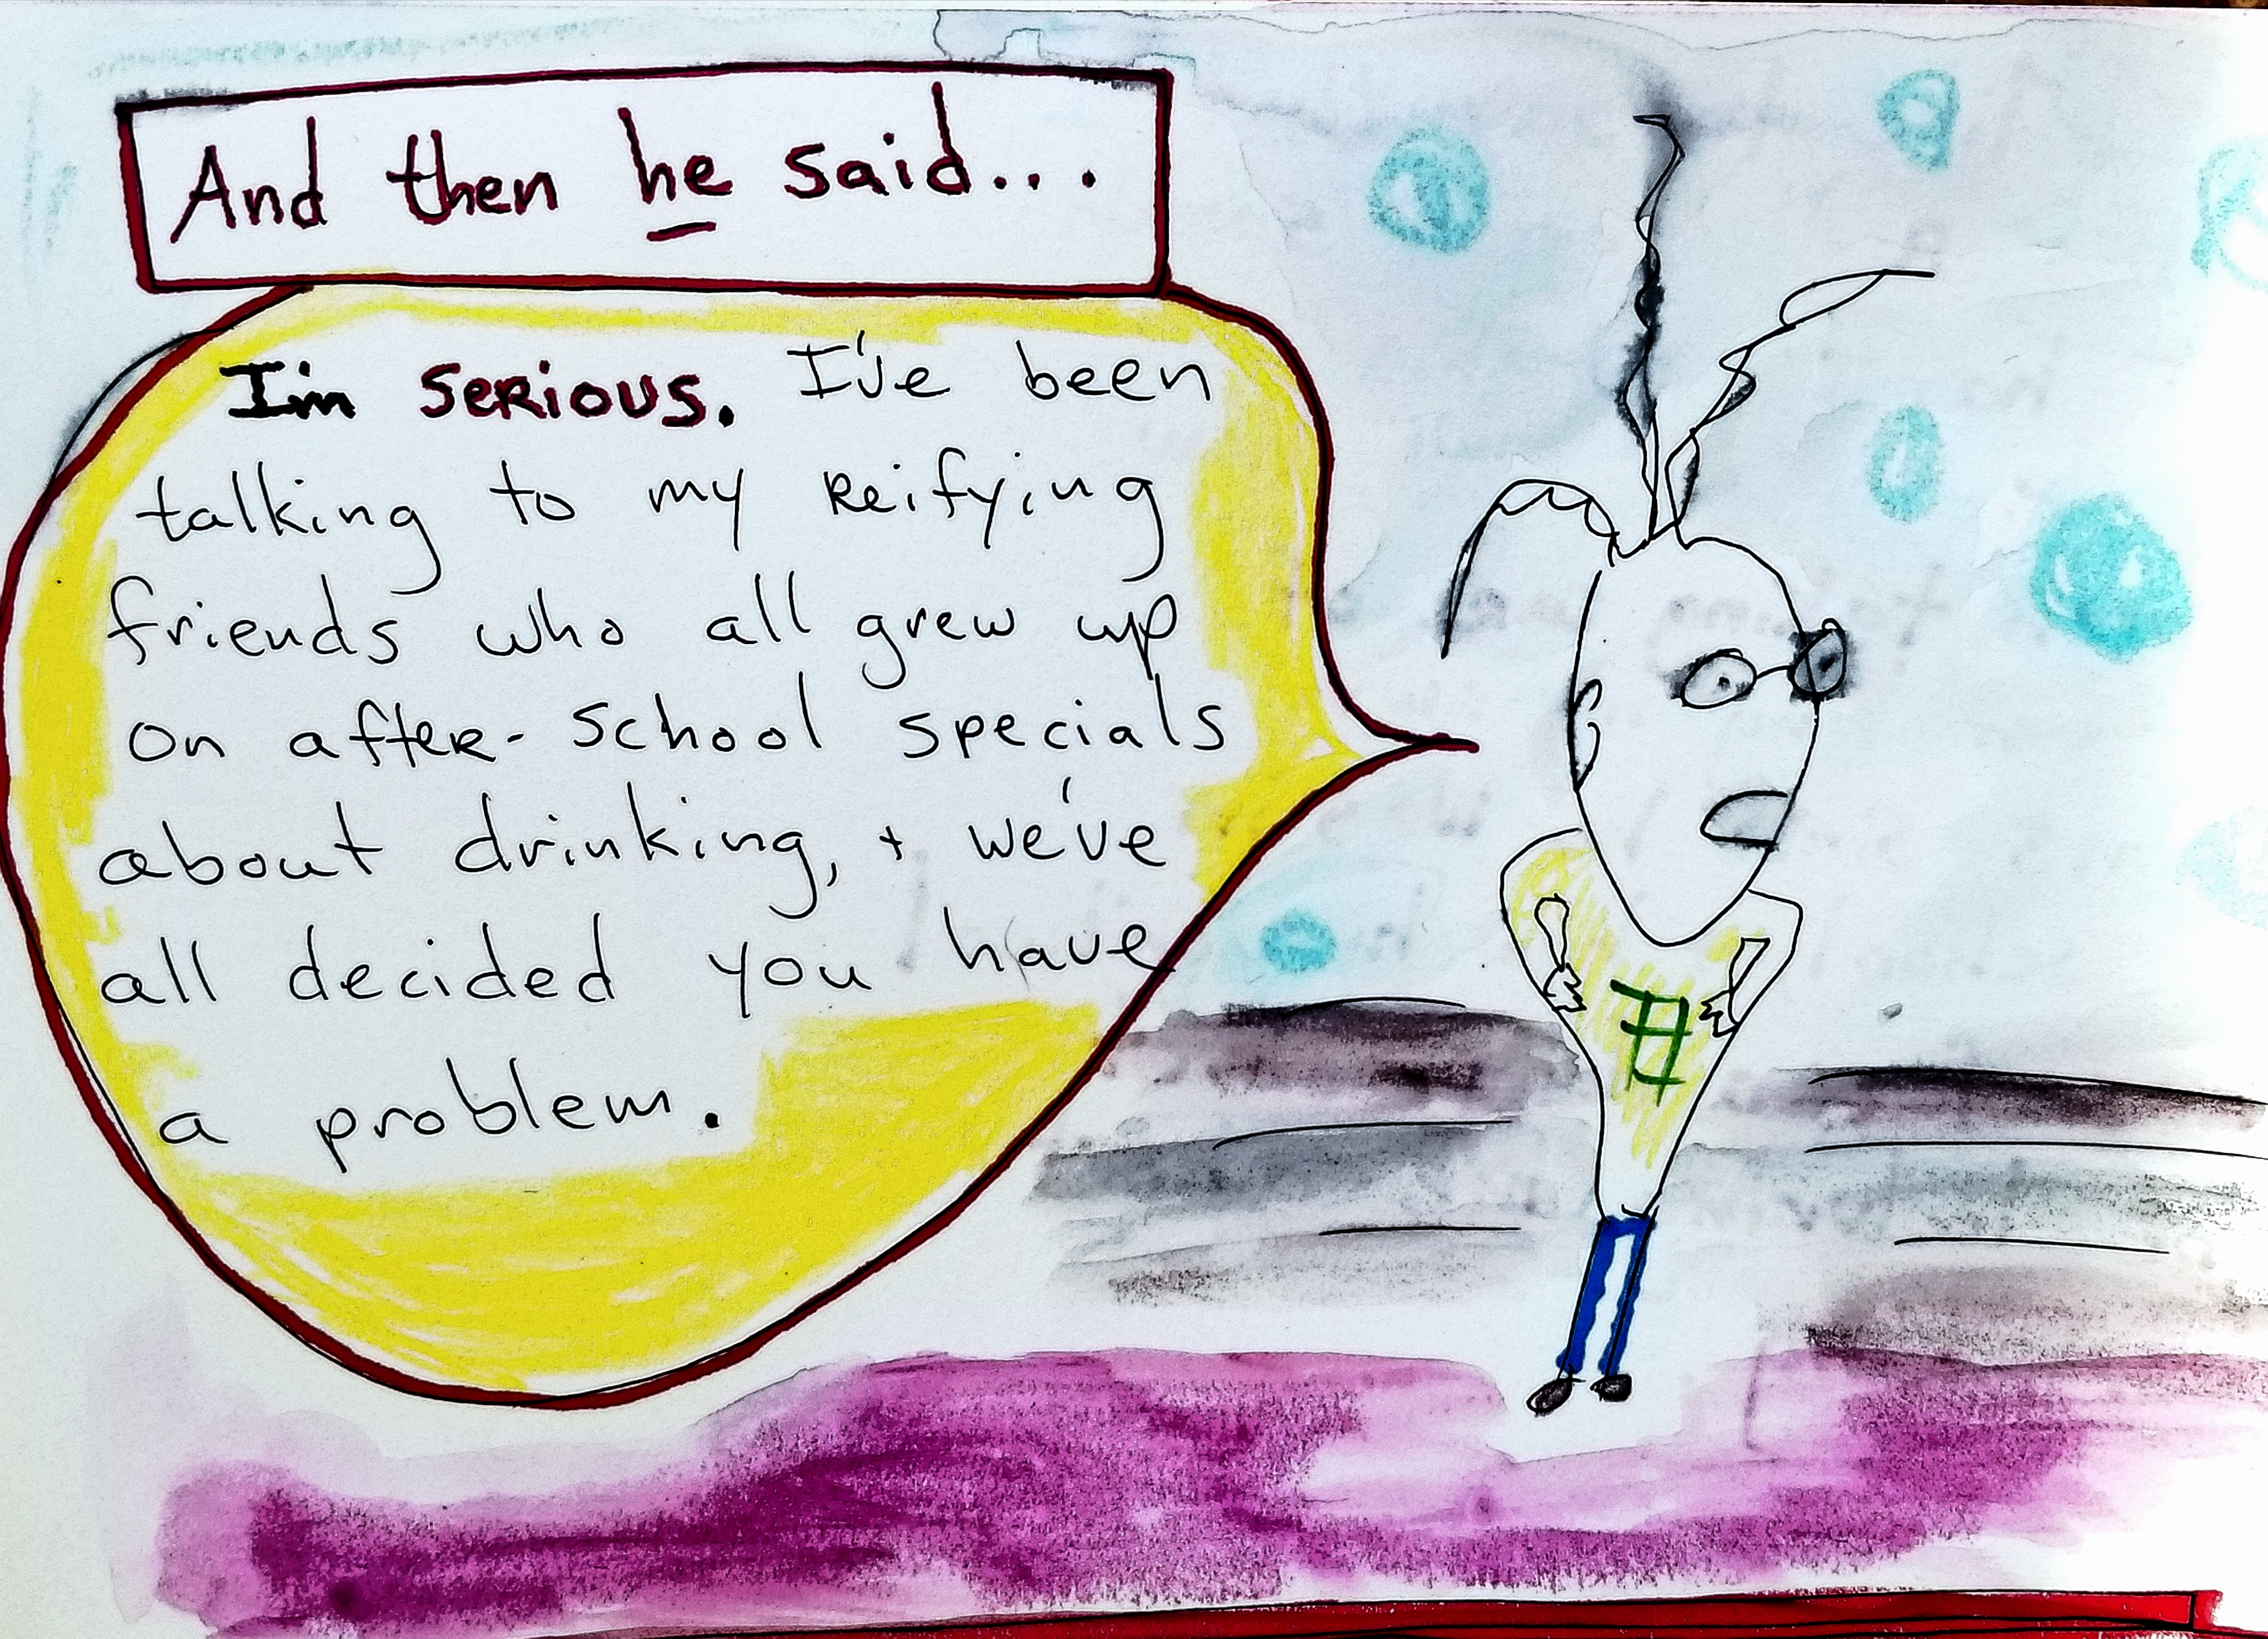 And then he said...
I'm SERIOUS. I've been
talking to my Reifying
friends who all grew up
on after-school specials
about drinking, + we've
all decided you have
a problem.